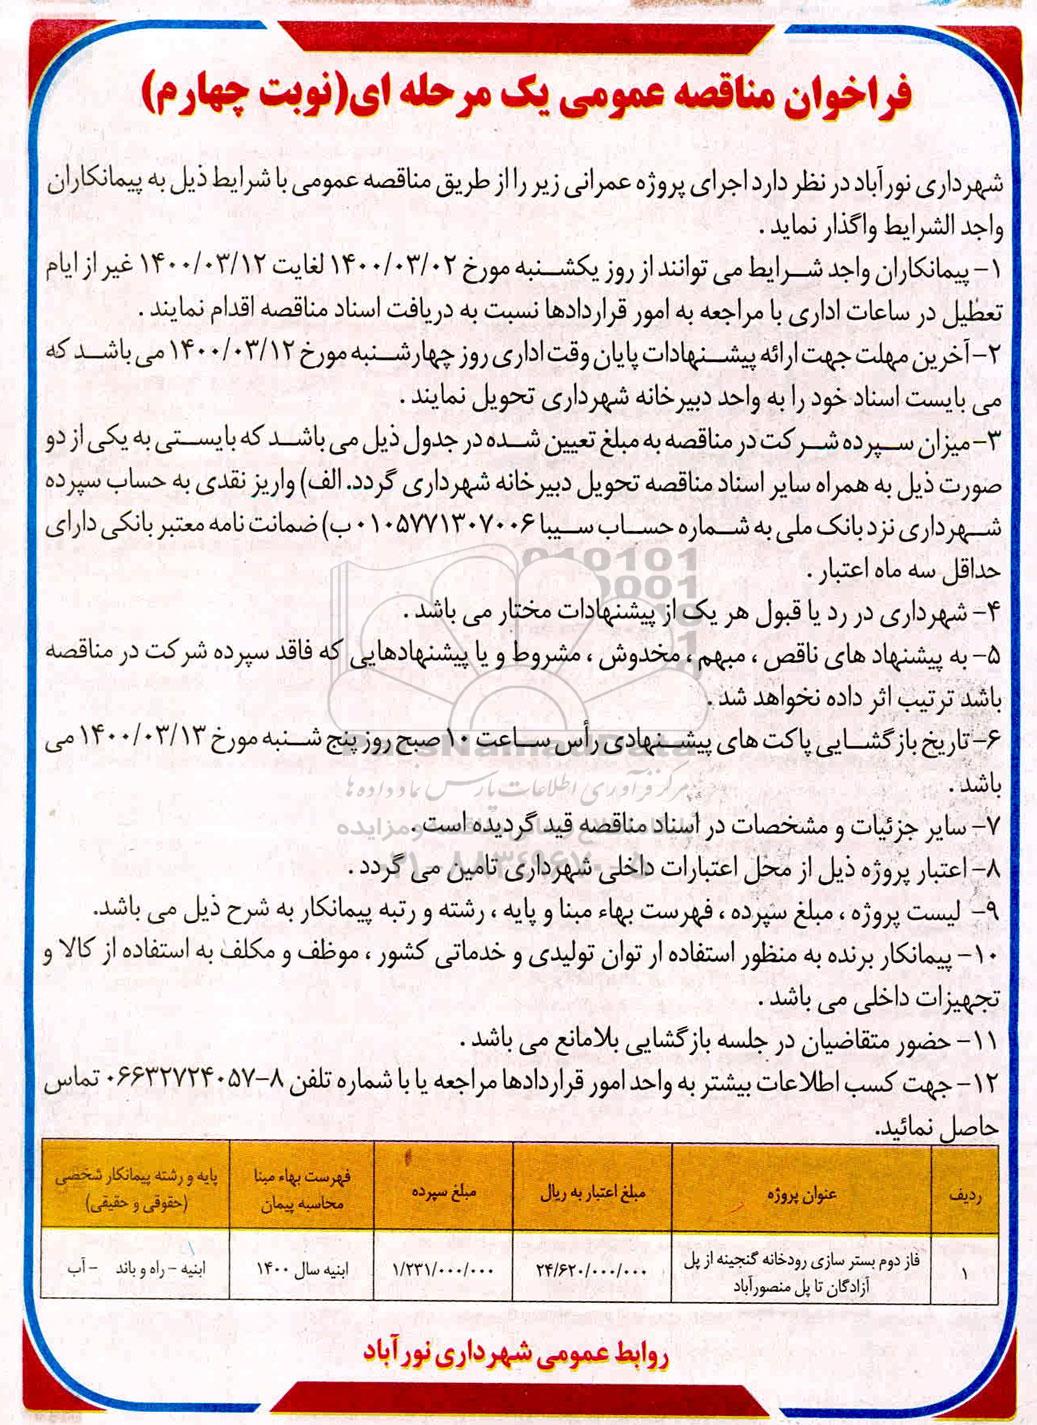 فراخوان مناقصه عمومی یک مرحله ای(نوبت چهارم)
شهرداری نورآباد در نظر دارد اجرای پروژه عمرانی زیر را از طریق مناقصه عمومی با شرایط ذیل به پیمانکاران
واجد الشرایط واگذار نماید .
۱- پیمانکاران واجد شرایط می توانند از روز یکشنبه مورخ ۱۴۰۰/۰۳/۰۲ لغایت ۱۴۰۰/۰۳/۱۲ غیر از ایام
تعطیل در ساعات اداری با مراجعه به امور قراردادها نسبت به دریافت اسناد مناقصه اقدام نمایند .
۲- آخرین مهلت جهت ارائه پیشنهادات پایان وقت اداری روز چهارشنبه مورخ ۱۴۰۰/۰۳/۱۲ می باشد که
می بایست اسناد خود را به واحد دبیرخانه شهرداری تحویل نمایند .
۳- میزان سپرده شرکت در مناقصه به مبلغ تعیین شده در جدول ذیل می باشد که بایستی به یکی از دو
صورت ذیل به همراه سایر اسناد مناقصه تحویل دبیرخانه شهرداری گردد. الف) واریز نقدی به حساب سپرده
شهرداری نزد بانک ملی به شماره حساب سیبا ۰۱۰۵۷۷۱۳۰۷۰۰۶ ب) ضمانت نامه معتبر بانکی دارای
حداقل سه ماه اعتبار .
۴- شهرداری در رد یا قبول هر یک از پیشنهادات مختار می باشد .
۵- به پیشنهاد های ناقص ، مبهم ، مخدوش ، مشروط و یا پیشنهادهایی که فاقد سپرده شرکت در مناقصه
باشد ترتیب اثر داده نخواهد شد .
۶- تاریخ بازگشایی پاکت های پیشنهادی رأس ساعت ۱۰ صبح روز پنج شنبه مورخ ۱۴۰۰/۰۳/۱۳ می
باشد .
۷- سایر جزئیات و مشخصات در اسناد مناقصه قید گردیده است .
۸- اعتبار پروژه ذیل از محل اعتبارات داخلی شهرداری تامین می گردد .
۹- لیست پروژه ، مبلغ سپرده ، فهرست بهاء مبنا و پایه ، رشته و رتبه پیمانکار به شرح ذیل می باشد.
۱۰- پیمانکار برنده به منظور استفاده ار توان تولیدی و خدماتی کشور ، موظف و مکلف به استفاده از کالا و
تجهیزات داخلی می باشد .
۱۱- حضور متقاضیان در جلسه بازگشایی بلامانع می باشد .
۱۲- جهت کسب اطلاعات بیشتر به واحد امور قراردادها مراجعه یا با شماره تلفن ۸-۰۶۶۳۲۷۲۴۰۵۷ تماس
حاصل نمائید.
ردیف عنوان پروژه مبلغ اعتبار به ریال مبلغ سپرده فهرست بهاء مبنا پایه و رشته پیمانکار شخصی
محاسبه پیمان (حقوقی و حقیقی)
۱ فاز دوم بستر سازی رودخانه گنجینه از پل ۲۴/۶۲۰/۰۰۰/۰۰۰ ۱/۲۳۱/۰۰۰/۰۰۰ ابنیه سال ۱۴۰۰ ابنیه - راه و باند - آب
آزادگان تا پل منصورآباد
روابط عمومی شهرداری نورآباد